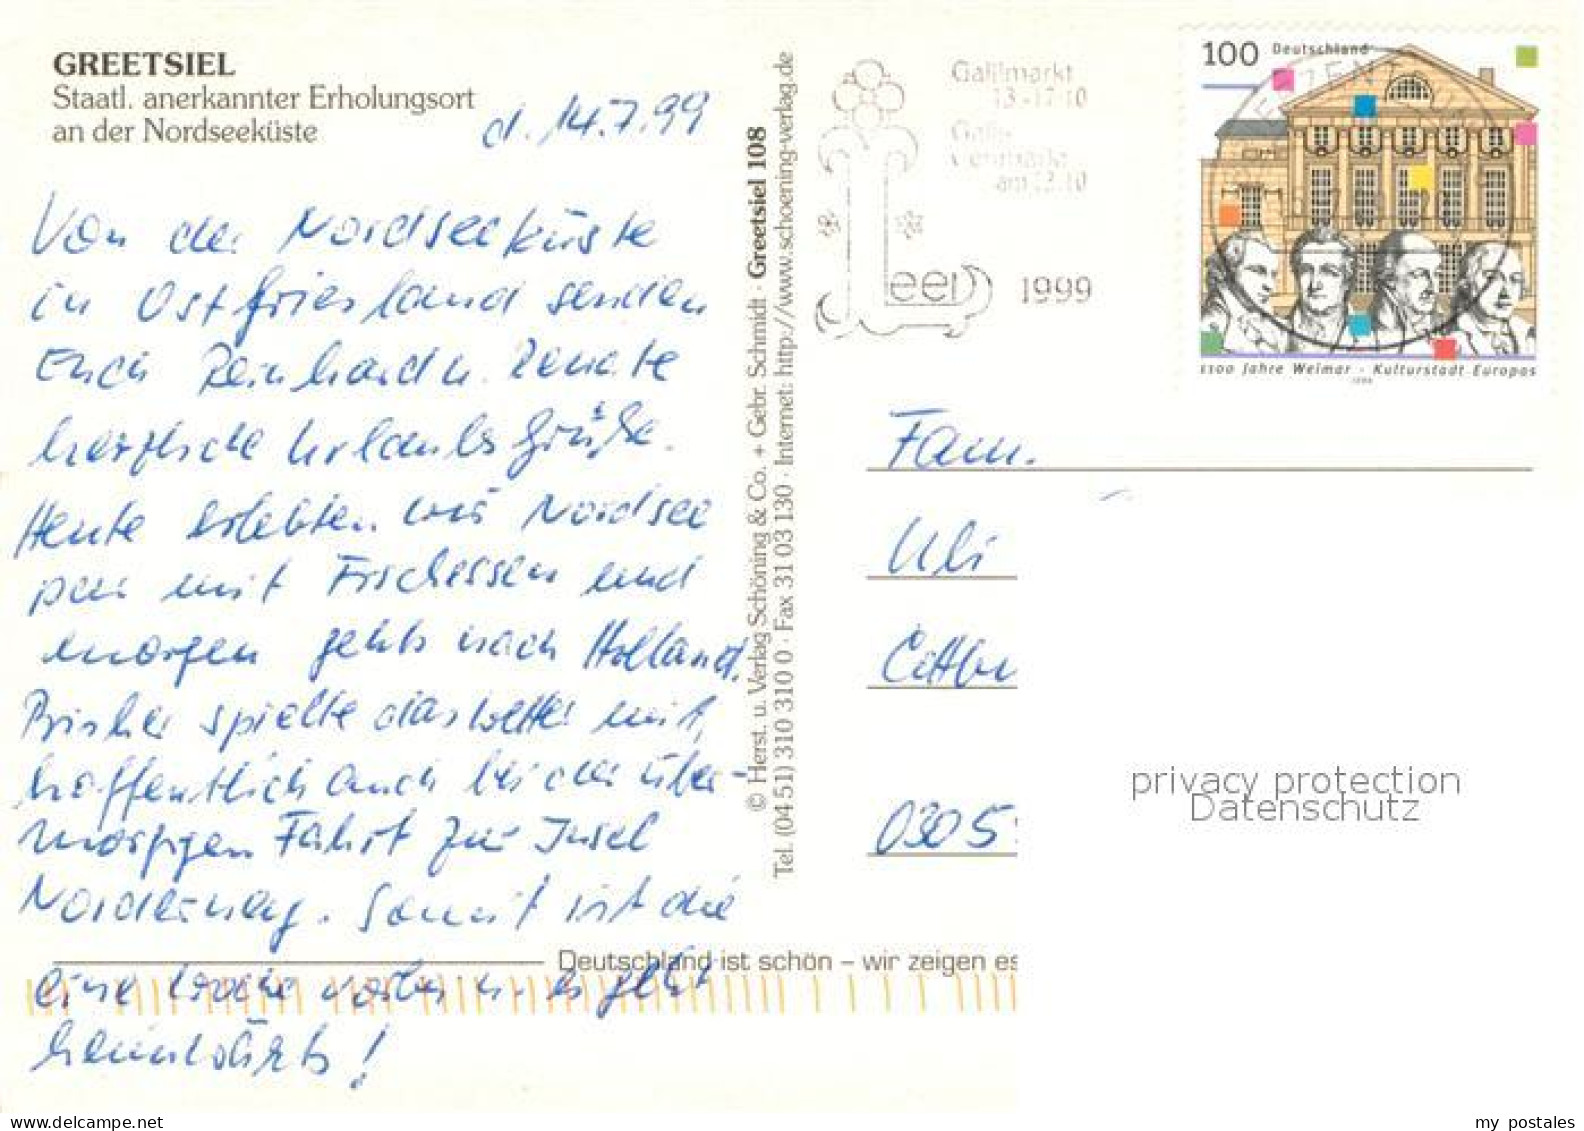 GREETSIEL
Staatl. anerkannter Erholungsort
an der Nordseeküste
d. 14.7.99
Von der Nordseeküste
in Ostfriesland senden
Euch Reinhard u. Renate
herzliche Urlaubs Grüße.
Heute erlebten wir Nordsee
pur mit Fischessen und
morgen gehts nach Holland.
Bisher spielte das Wetter mit,
hoffentlich auch bei der über-
morgigen Fahrt zur Insel
Norderney. Somit ist die
eine Woche vorbei u. es geht
heimwärts!
© Herst. u. Verlag Schöning & Co. + Gebr. Schmidt · Greetsiel 108
Tel. (04 51) 310 310 0 · Fax 31 03 130 · Internet: http://www.schoening-verlag.de
Gallimarkt
13.-17.10
am 13.10
Leer
1999
100 Deutschland
1100 Jahre Weimar - Kulturstadt Europas
1999
Fam.
Uli
Cottbu
0305
privacy protection
Datenschutz
Deutschland ist schön – wir zeigen es
my postales